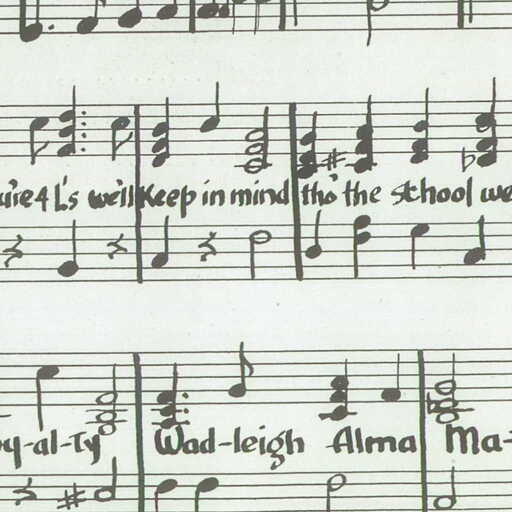 we'll Keep in mind tho' the school we
al-Ty Wad-leigh Alma Ma-